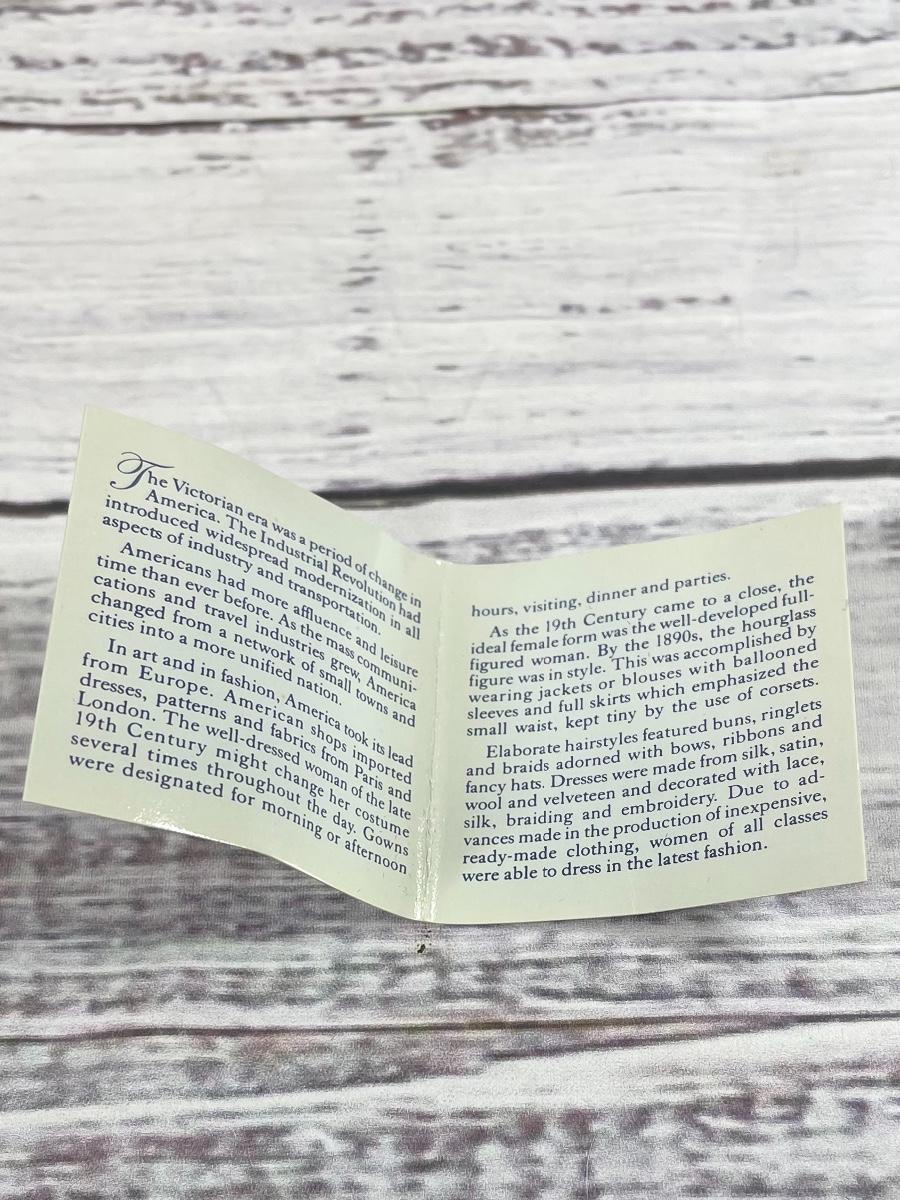 The Victorian era was a period of change in
America. The Industrial Revolution had
introduced widespread modernization in all
aspects of industry and transportation.
Americans had more affluence and leisure
time than ever before. As the mass communi-
cations and travel industries grew, America
changed from a network of small towns and
cities into a more unified nation.
In art and in fashion, America took its lead
from Europe. American shops imported
dresses, patterns and fabrics from Paris and
London. The well-dressed woman of the late
19th Century might change her costume
several times throughout the day. Gowns
were designated for morning or afternoon
hours, visiting, dinner and parties.
As the 19th Century came to a close, the
ideal female form was the well-developed full-
figured woman. By the 1890s, the hourglass
figure was in style. This was accomplished by
wearing jackets or blouses with ballooned
sleeves and full skirts which emphasized the
small waist, kept tiny by the use of corsets.
Elaborate hairstyles featured buns, ringlets
and braids adorned with bows, ribbons and
fancy hats. Dresses were made from silk, satin,
wool and velveteen and decorated with lace,
silk, braiding and embroidery. Due to ad-
vances made in the production of inexpensive,
ready-made clothing, women of all classes
were able to dress in the latest fashion.